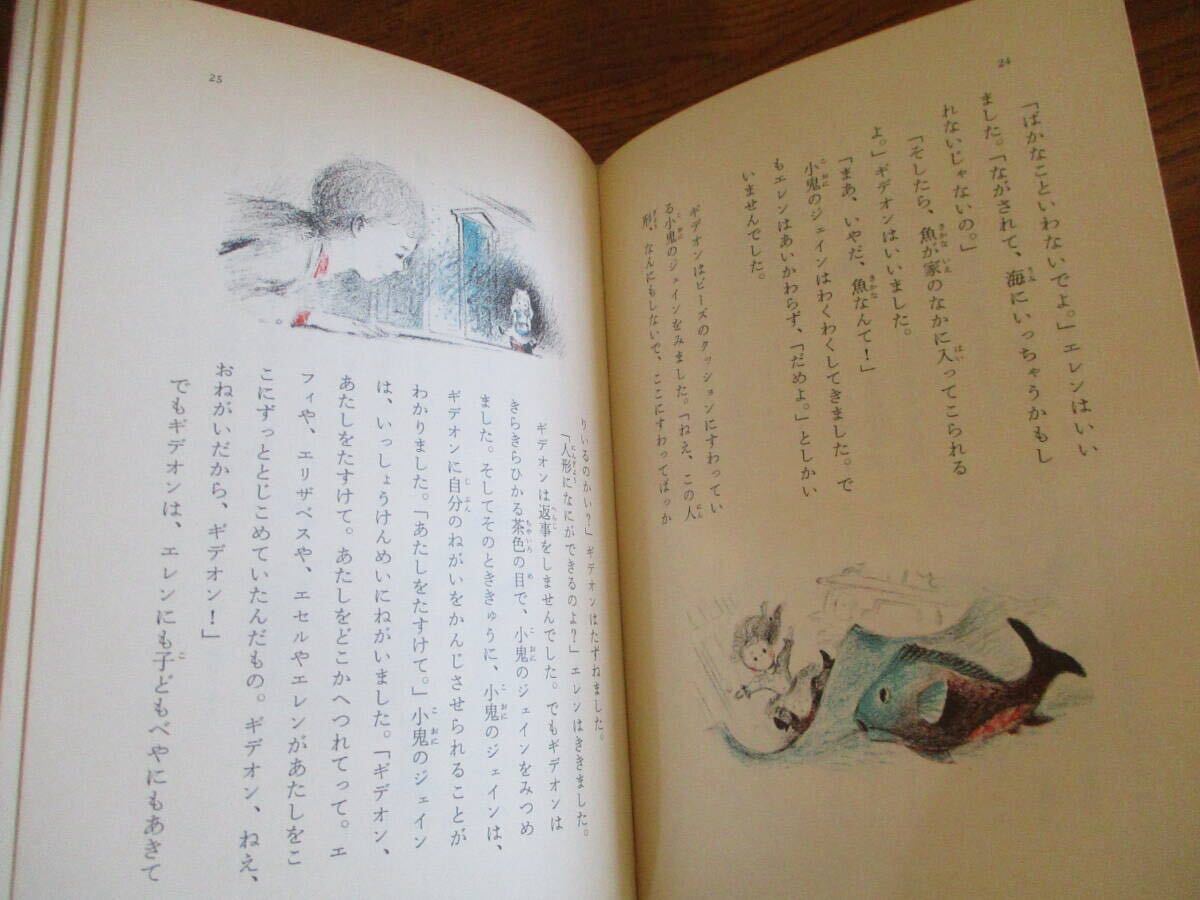 24
「ばかなこといわないでよ。」エレンはいい
ました。「ながされて、海にいっちゃうかもし
れないじゃないの。」
「そしたら、魚が家のなかに入ってこられる
よ。」ギデオンはいいました。
「まあ、いやだ、魚なんて！」
小鬼のジェインはわくわくしてきました。で
もエレンはあいかわらず、「だめよ。」としかい
いませんでした。
ギデオンはビーズのクッションにすわってい
る小鬼のジェインをみました。「ねえ、この人
形、なんにもしないで、ここにすわってばっか
25
りいるのかい？」ギデオンはたずねました。
「人形になにができるのよ？」エレンはききました。
ギデオンは返事をしませんでした。でもギデオンは
きらきらひかる茶色の目で、小鬼のジェインをみつめ
ました。そしてそのとききゅうに、小鬼のジェインは、
ギデオンに自分のねがいをかんじさせられることが
わかりました。「あたしをたすけて。」小鬼のジェイン
は、いっしょうけんめいにねがいました。「ギデオン、
あたしをたすけて。あたしをどこかへつれてって。エ
フィや、エリザベスや、エセルやエレンがあたしをこ
こにずっととじこめていたんだもの。ギデオン、ねえ、
おねがいだから、ギデオン！」
でもギデオンは、エレンにも子どもべやにもあきて